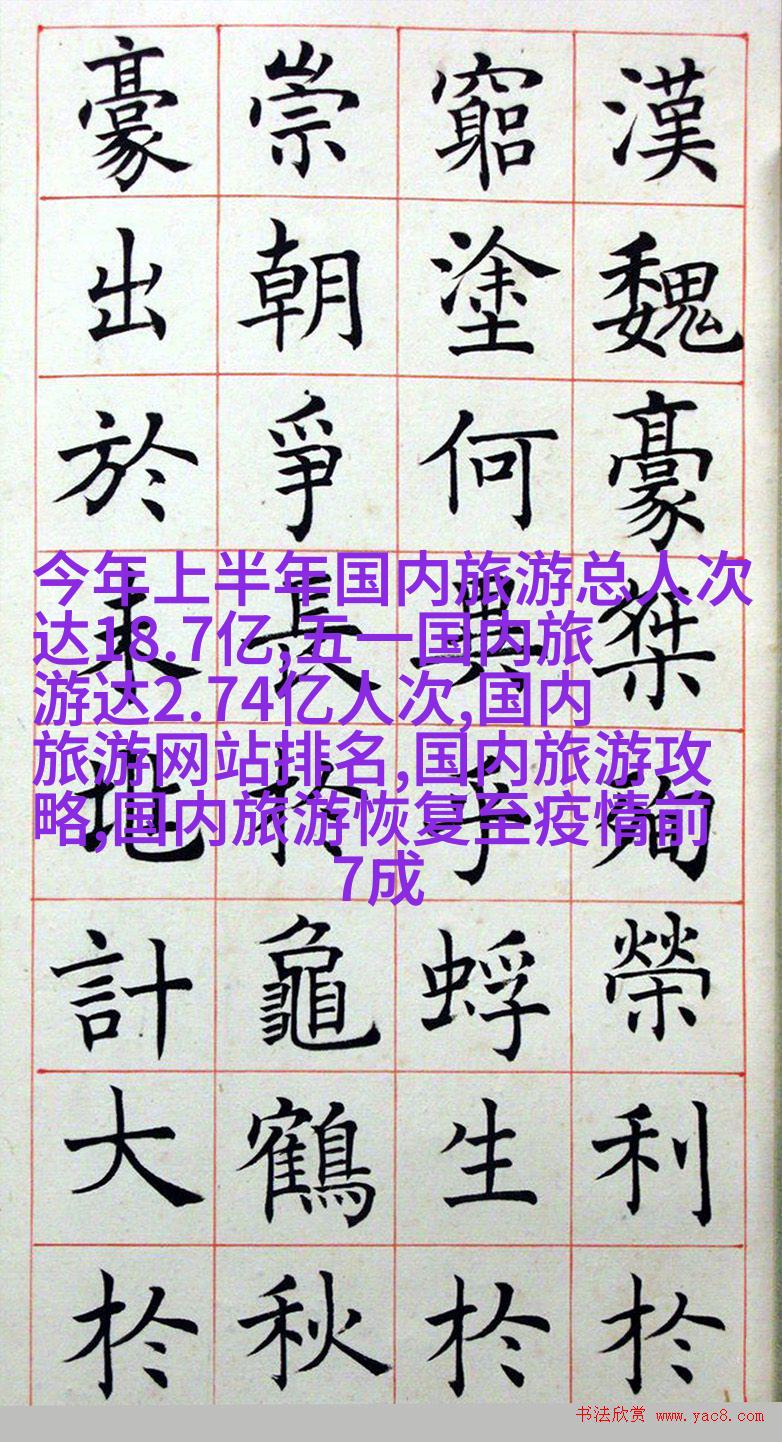 漢魏豪桀殉榮利扵
窮塗何異乎蜉生扵
崇朝爭長扵龜鶴秋
豪出於地計大扵
今年上半年国内旅游总人次
达18.7亿,五一国内旅
游达2.74亿人次,国内
旅游网站排名,国内旅游攻
略,国内旅游恢复至疫情前
7成
书法欣赏 www.yac8.com